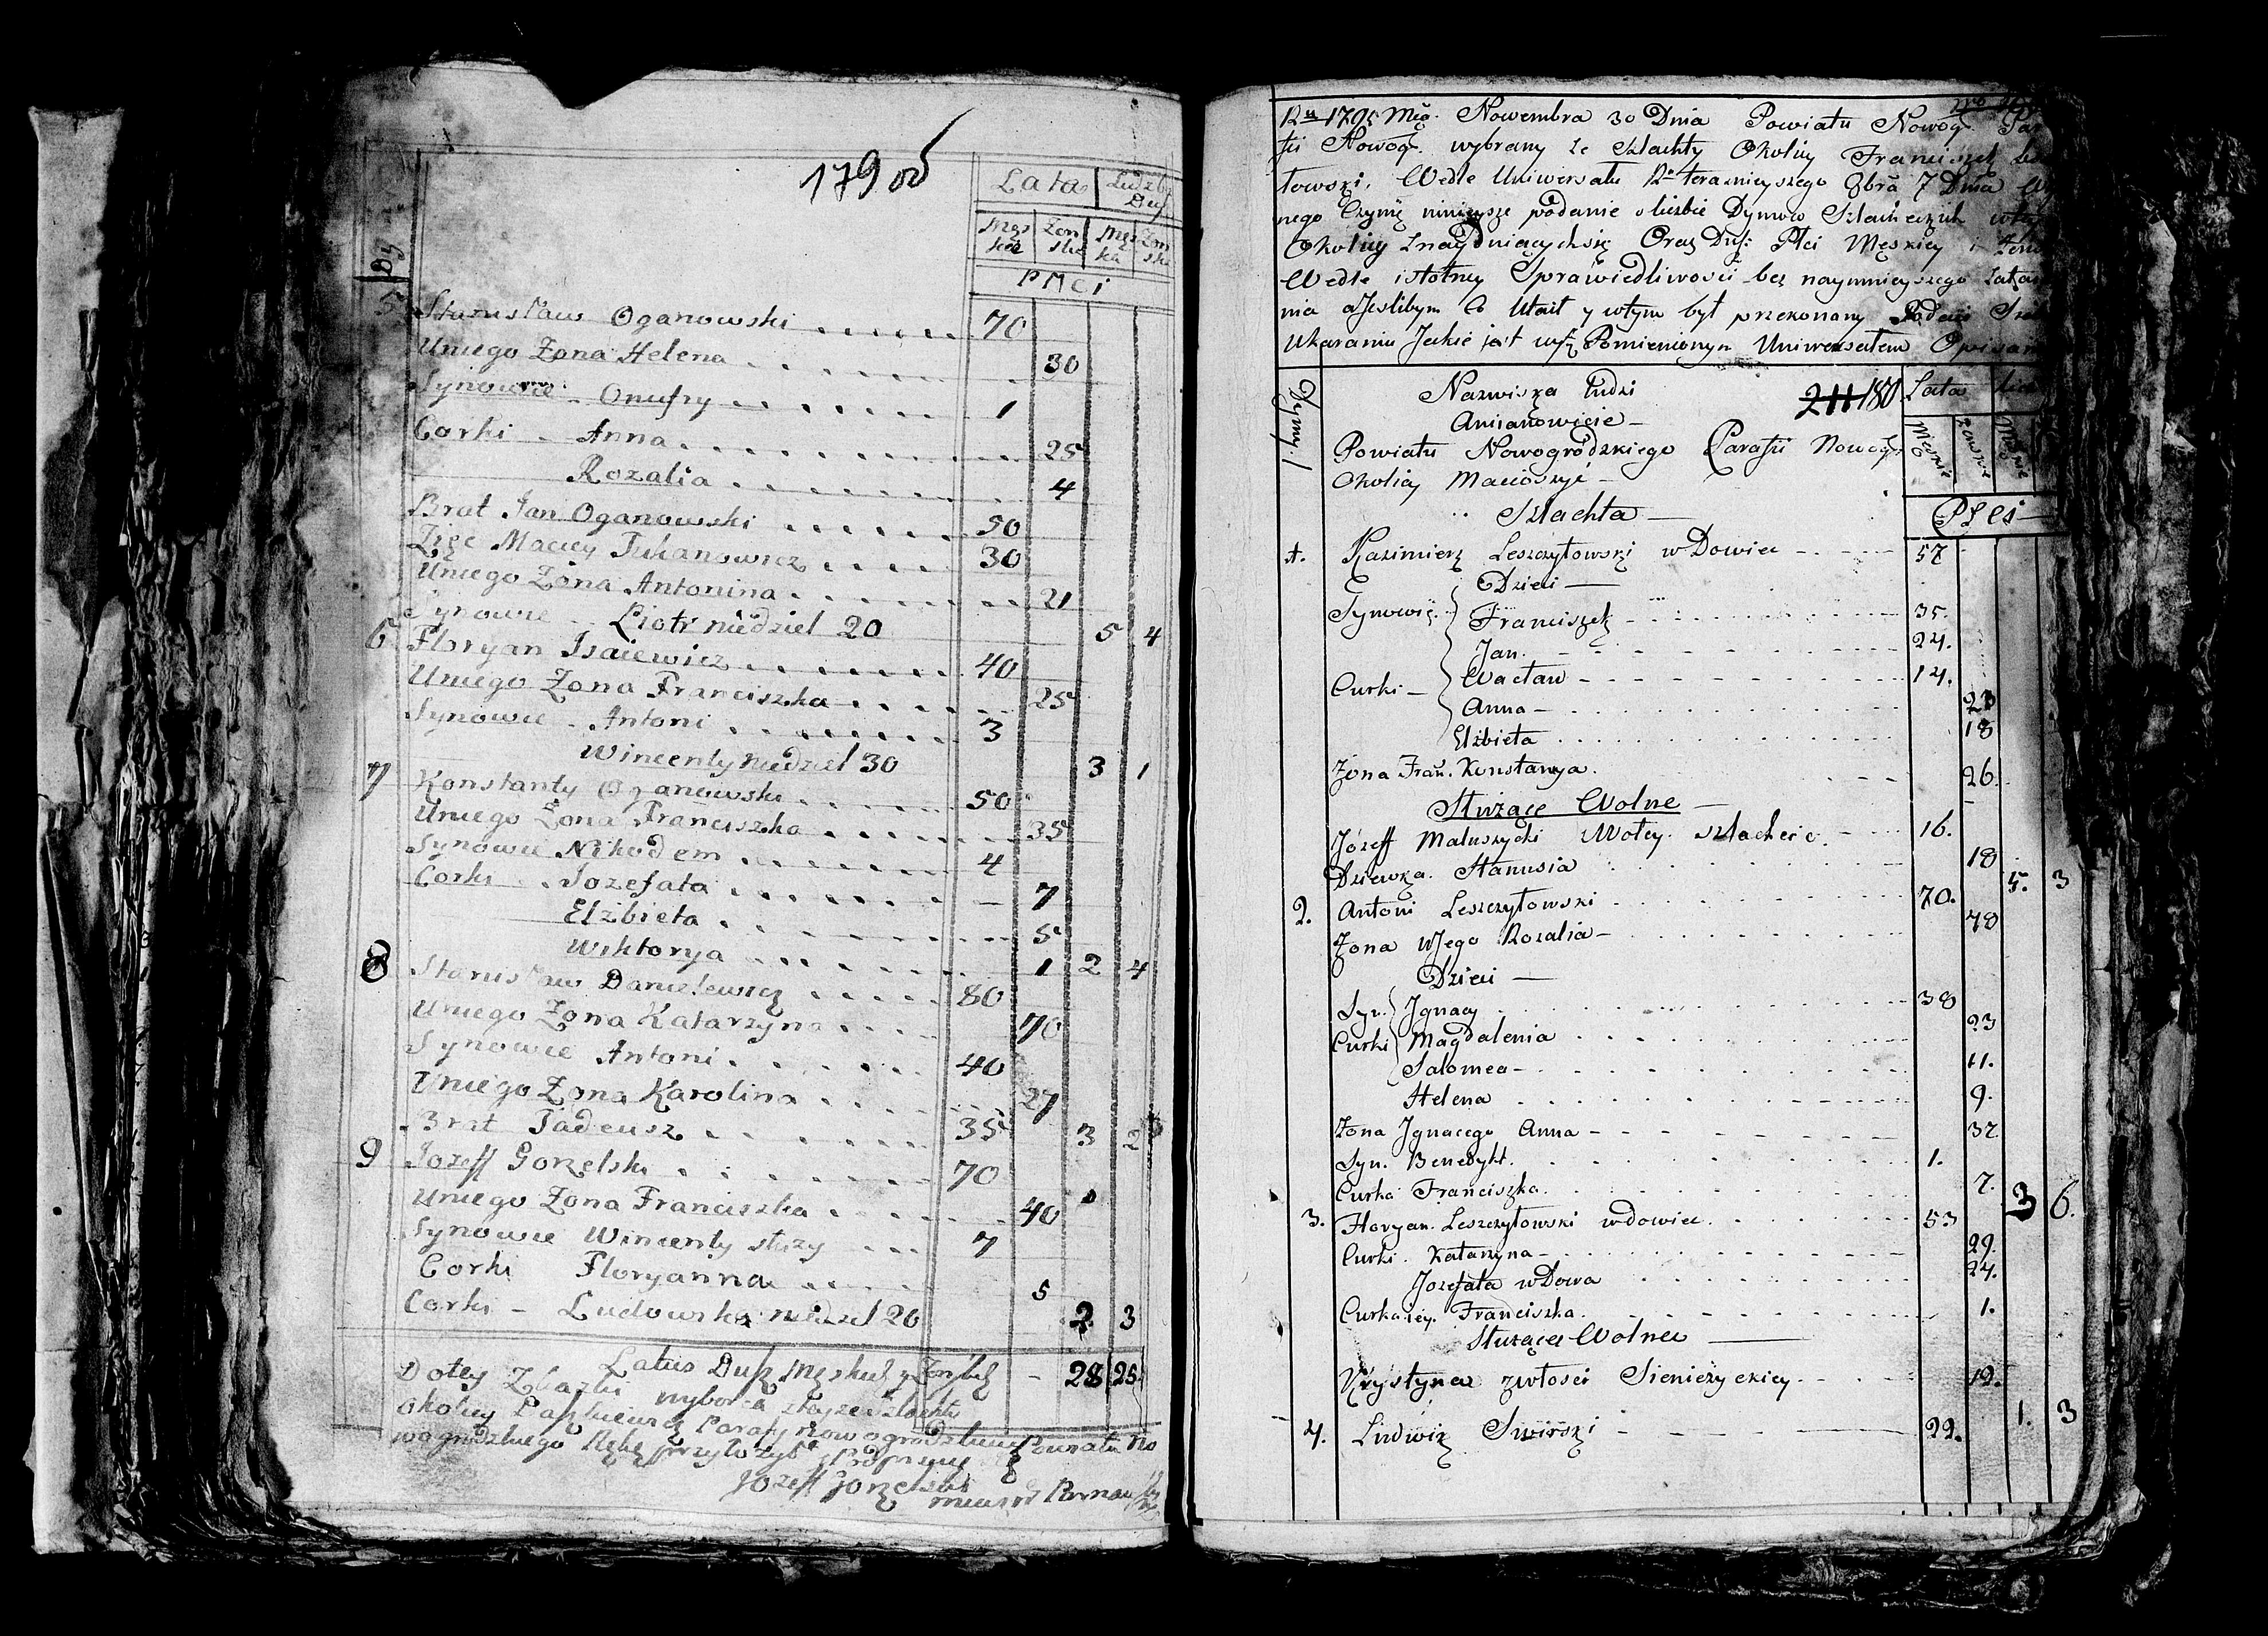 179 об
Lata Liczby Dusz
Męs kie Żen skie Męs kie Żen skie
Płci
5 Stanisław Oganowski 70
Uniego Żona Helena 30
Synowie Onufry 1
Corki Anna 25
Rozalia 4
Brat Jan Oganowski 50
Zięc Maciey Tukanowicz 30
Uniego Żona Antonina 21
Synowie Piotr niedziel 20 5 4
6 Floryan Isaiewicz 40
Uniego Żona Franciszka 25
Synowie Antoni 3
Wincenty niedziel 30 3 1
7 Konstanty Oganowski 50
Uniego Żona Franciszka 35
Synowie Nikodem 4
Corki Jozefata 7
Elżbieta 5
Wiktorya 1 2 4
8 Stanisław Danielewicz 80
Uniego Żona Katarzyna 70
Synowie Antoni 40
Uniego Żona Karolina 27
Brat Tadeusz 35 3 2
9 Jozeff Gorzelski 70
Uniego Żona Franciszka 40
Synowie Wincenty służy 7
Corki Floryanna 5
Corki – Ludowika niedziel 20 2 3
Latus Dusz Męskich y Żeńskich – 28 25
Dotey wyboru szlachty
Okolicy Parafij Nowogrodzkiey Powiatu No
wogrodzkiego Rękę przyłożył
Jozeff Gorzelski
Ru 1795 Mcā. Nowembra 30 Dnia Powiatu Nowog. Par
fii Nowog. wybrany ze Szlachty Okolicy Franciszek
towski. Wedle Uniwersału Ru teraznieyszego 8brā 7 Dnia
nego Czynię niniejsze podanie o liczbie Dymow Szlacheckich
Okolicy Znaydniącychsię Oraz Dusz Płci Męskiey i Żeń
Wedle istotney Sprawiedliwości bez naymnieyszego Zata
nia a Jeslibym Co Utaił y wtym był przekonany Podaię
Ukaraniu Jakie jest wysz Pomienionym Uniwersałem Opisan
Dymy
Nazwiska ludzi 211 180 Lata
Anianowicie –
Powiatu Nowogrodzkiego Parafii Nowog.
Okolicy Macioszyć –
Szlachta – Płci –
1. Kazimierz Leszczytowski wDowiec 57
Dzieci –
Synowie Franciszek 35.
Jan. 24.
Wacław 14.
Curki – Anna 23
Elżbieta 18
Żona Fran. Konstancya. 26.
Służące Wolne –
Józeff Matuszycki Wolny. szlachcic. 16.
Dziewka. Stanusia 18 5. 3
2. Antoni Leszczytowski 70.
Żona Wjego Rozalia 48
Dzieci –
Syn. Jgnacy 38
Curki Magdalenia 23
Salomea 11.
Helena 9.
Żona Jgnacego Anna 32
Syn. Benedykt. 1.
Curka Franciszka. 7. 3 6.
3. Floryan. Leszczytowski wdowiec. 53
Curki. Katarzyna 29.
Jozefata wDowa 24.
Curka iey. Franciszka. 1.
Służąca Wolna
Krystyna zwłosci Sienieżyckiey 12. 1. 3
4. Ludwik Swirski 22.